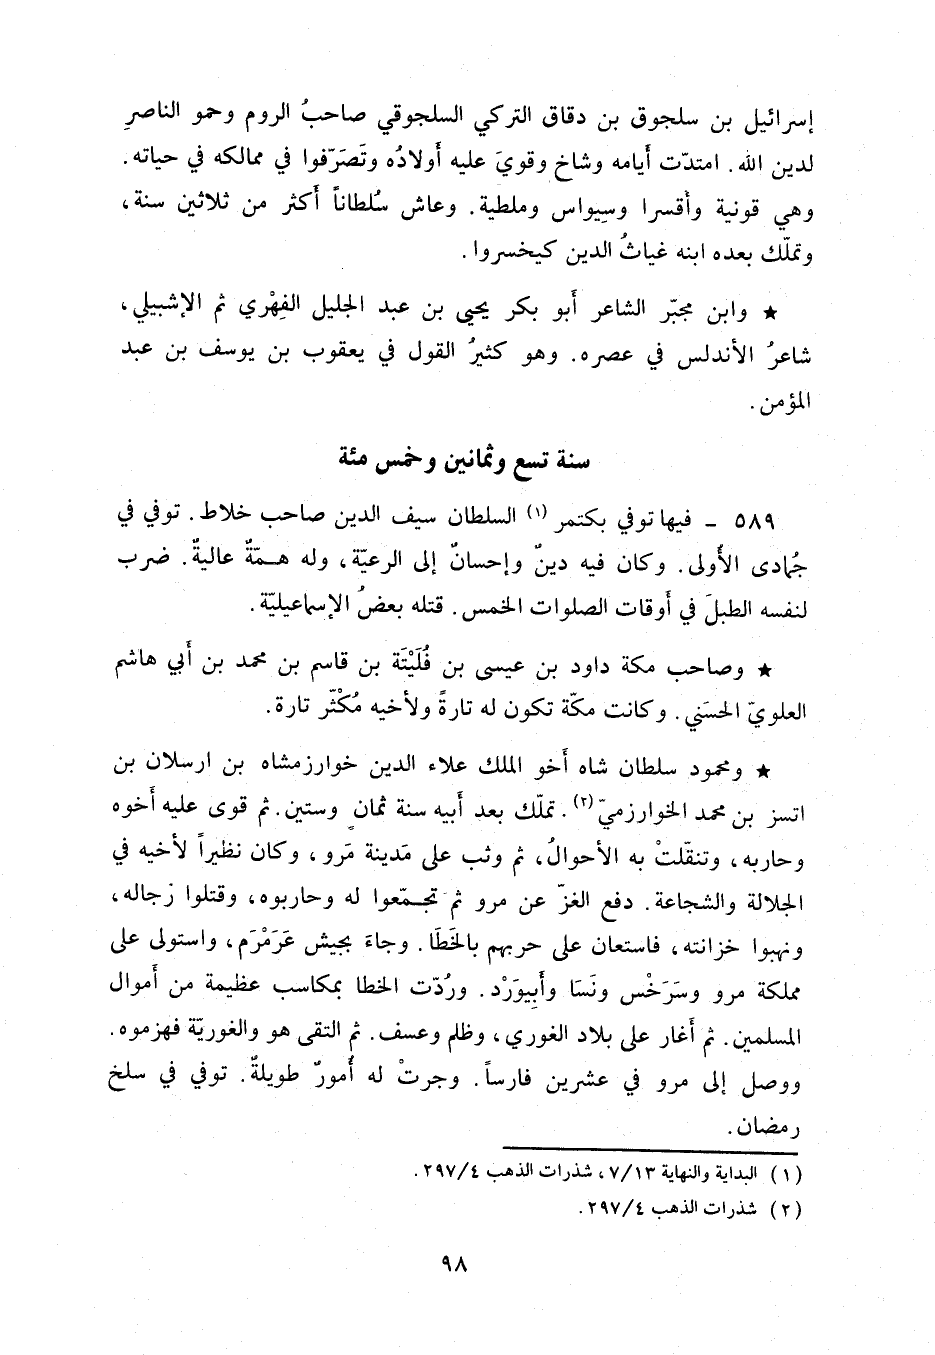 إسرائيل بن سلجوق بن دقاق التركي السلجوقي صاحبُ الروم وحمو الناصرِ
لدين الله. امتدّت أيامه وشاخ وقويَ عليه أولادُه وتَصَرّفوا في ممالكه في حياته.
وهي قونية وأقسرا وسِيواس وملطية. وعاش سُلطاناً أكثر من ثلاثين سنة،
وتملّك بعده ابنه غياثُ الدين كيخسروا.
★ وابن مجبّر الشاعر أبو بكر يحيى بن عبد الجليل الفِهْري ثم الإشبيلي،
شاعرُ الأندلس في عصره. وهو كثيرُ القول في يعقوب بن يوسف بن عبد
المؤمن.
سنة تسع وثمانين وخمس مئة
٥٨٩ - فيها توفي بكتمر (١) السلطان سيف الدين صاحب خلاط. توفي في
جُمادى الأُولى. وكان فيه دينٌ وإحسانٌ إلى الرعيّة، وله همّةٌ عاليةٌ. ضرب
لنفسه الطبلَ في أوقات الصلوات الخمس. قتله بعضُ الإسماعيليّة.
★ وصاحب مكة داود بن عيسى بن فُلَيْتَة بن قاسم بن محمد بن أبي هاشم
العلويّ الحسَني. وكانت مكّة تكون له تارةً ولأخيه مُكْثّر تارة.
★ ومحمود سلطان شاه أخو الملك علاء الدين خوارزمشاه بن ارسلان بن
اتسز بن محمد الخوارزميّ (٢). تملّك بعد أبيه سنة ثمانٍ وستين. ثم قوى عليه أخوه
وحاربه، وتنقّلتْ به الأحوالُ، ثم وثب على مَدينة مَرو، وكان نظيراً لأخيه في
الجلالة والشجاعة. دفع الغزّ عن مرو ثم تجمّعوا له وحاربوه، وقتلوا رْجاله،
ونهبوا خزانته، فاستعان على حربهم بالخَطَا. وجاءَ بجيش عَرَمْرَم، واستولى على
مملكة مرو وسَرَخْس ونَسَا وأَبِيوَرْد. ورُدّت الخطا بمكاسب عظيمة من أموال
المسلمين. ثم أغار على بلاد الغوري، وظلم وعسف. ثم التقى هو والغوريّة فهزموه.
ووصل إلى مرو في عشرين فارساً. وجرتْ له أُمورٌ طويلةٌ. توفي في سلخ
رمضان.
(١) البداية والنهاية ٧/١٣، شذرات الذهب ٢٩٧/٤.
(٢) شذرات الذهب ٢٩٧/٤.
٩٨